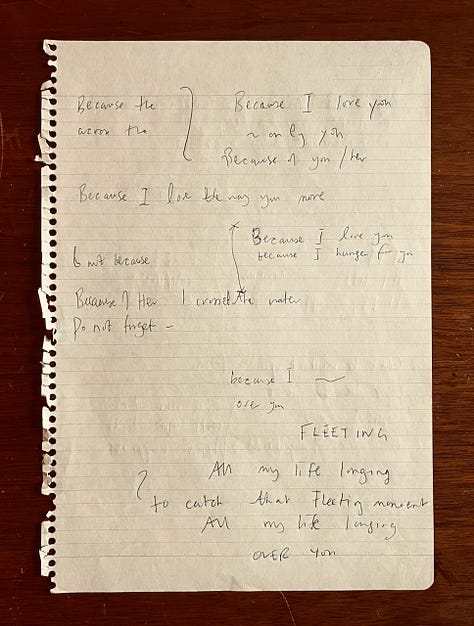 Because the
across the
Because I love you
~ only you
Because of you / her
Because I love the way you move
Because I love you
because I hunger for you
& not because
Because of Her I crossed the water
Do not forget -
because I
over you
FLEETING
All my life longing
to catch that Fleeting moment
All my life longing
OVER YOU